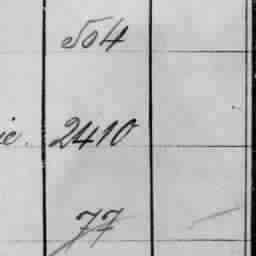 504
ie. 2410
77